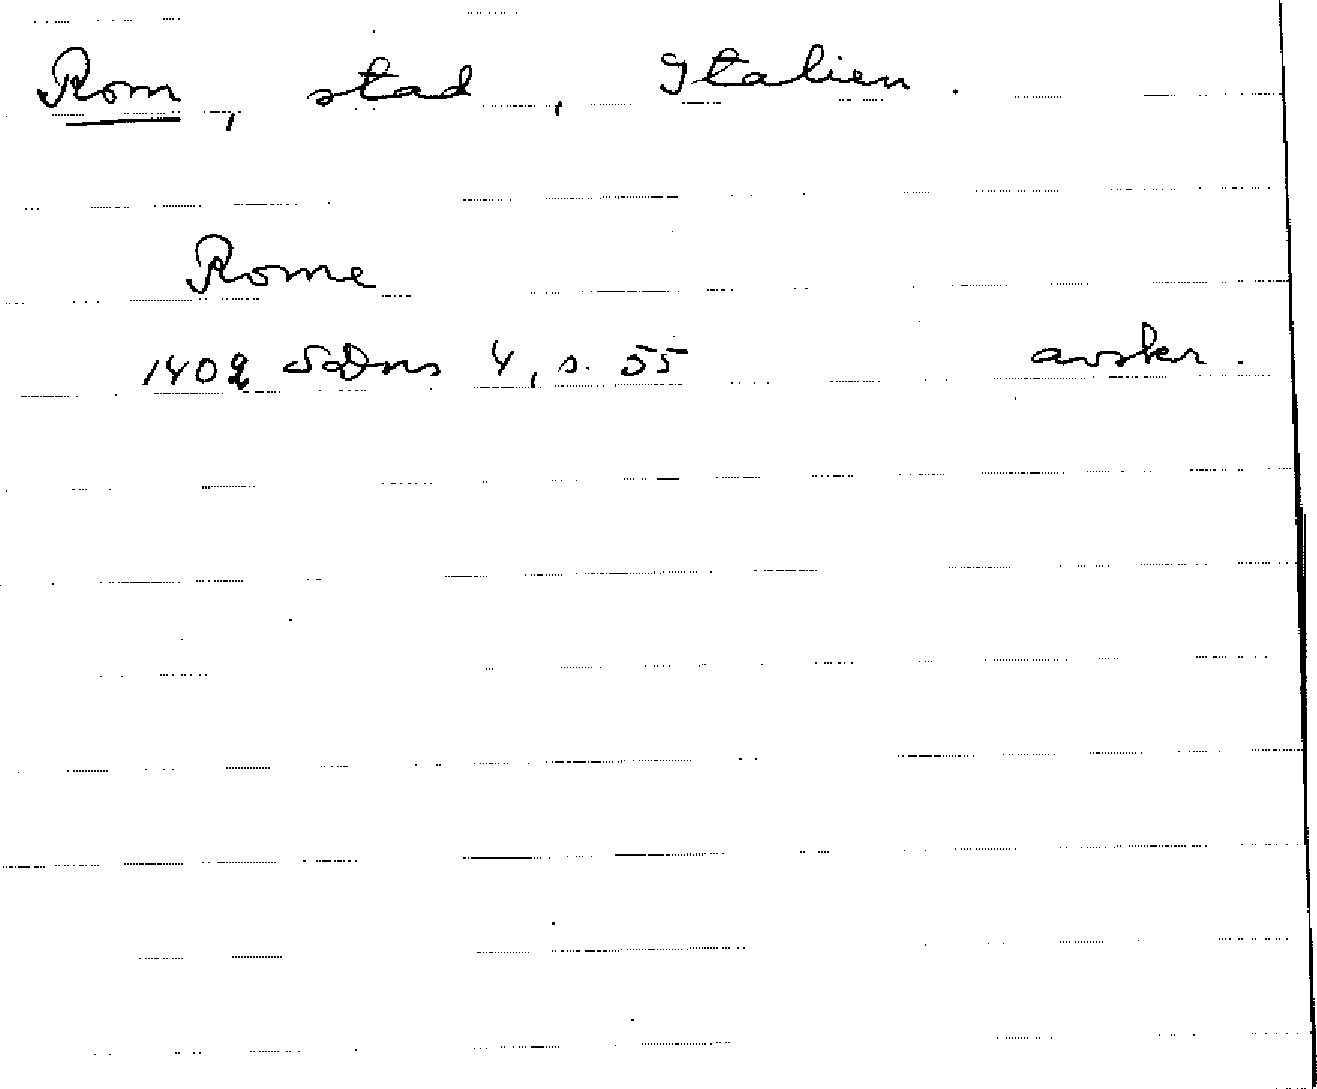 Rom, stad, Italien.
Rome
1402 SDns 4, s. 55 avskr.